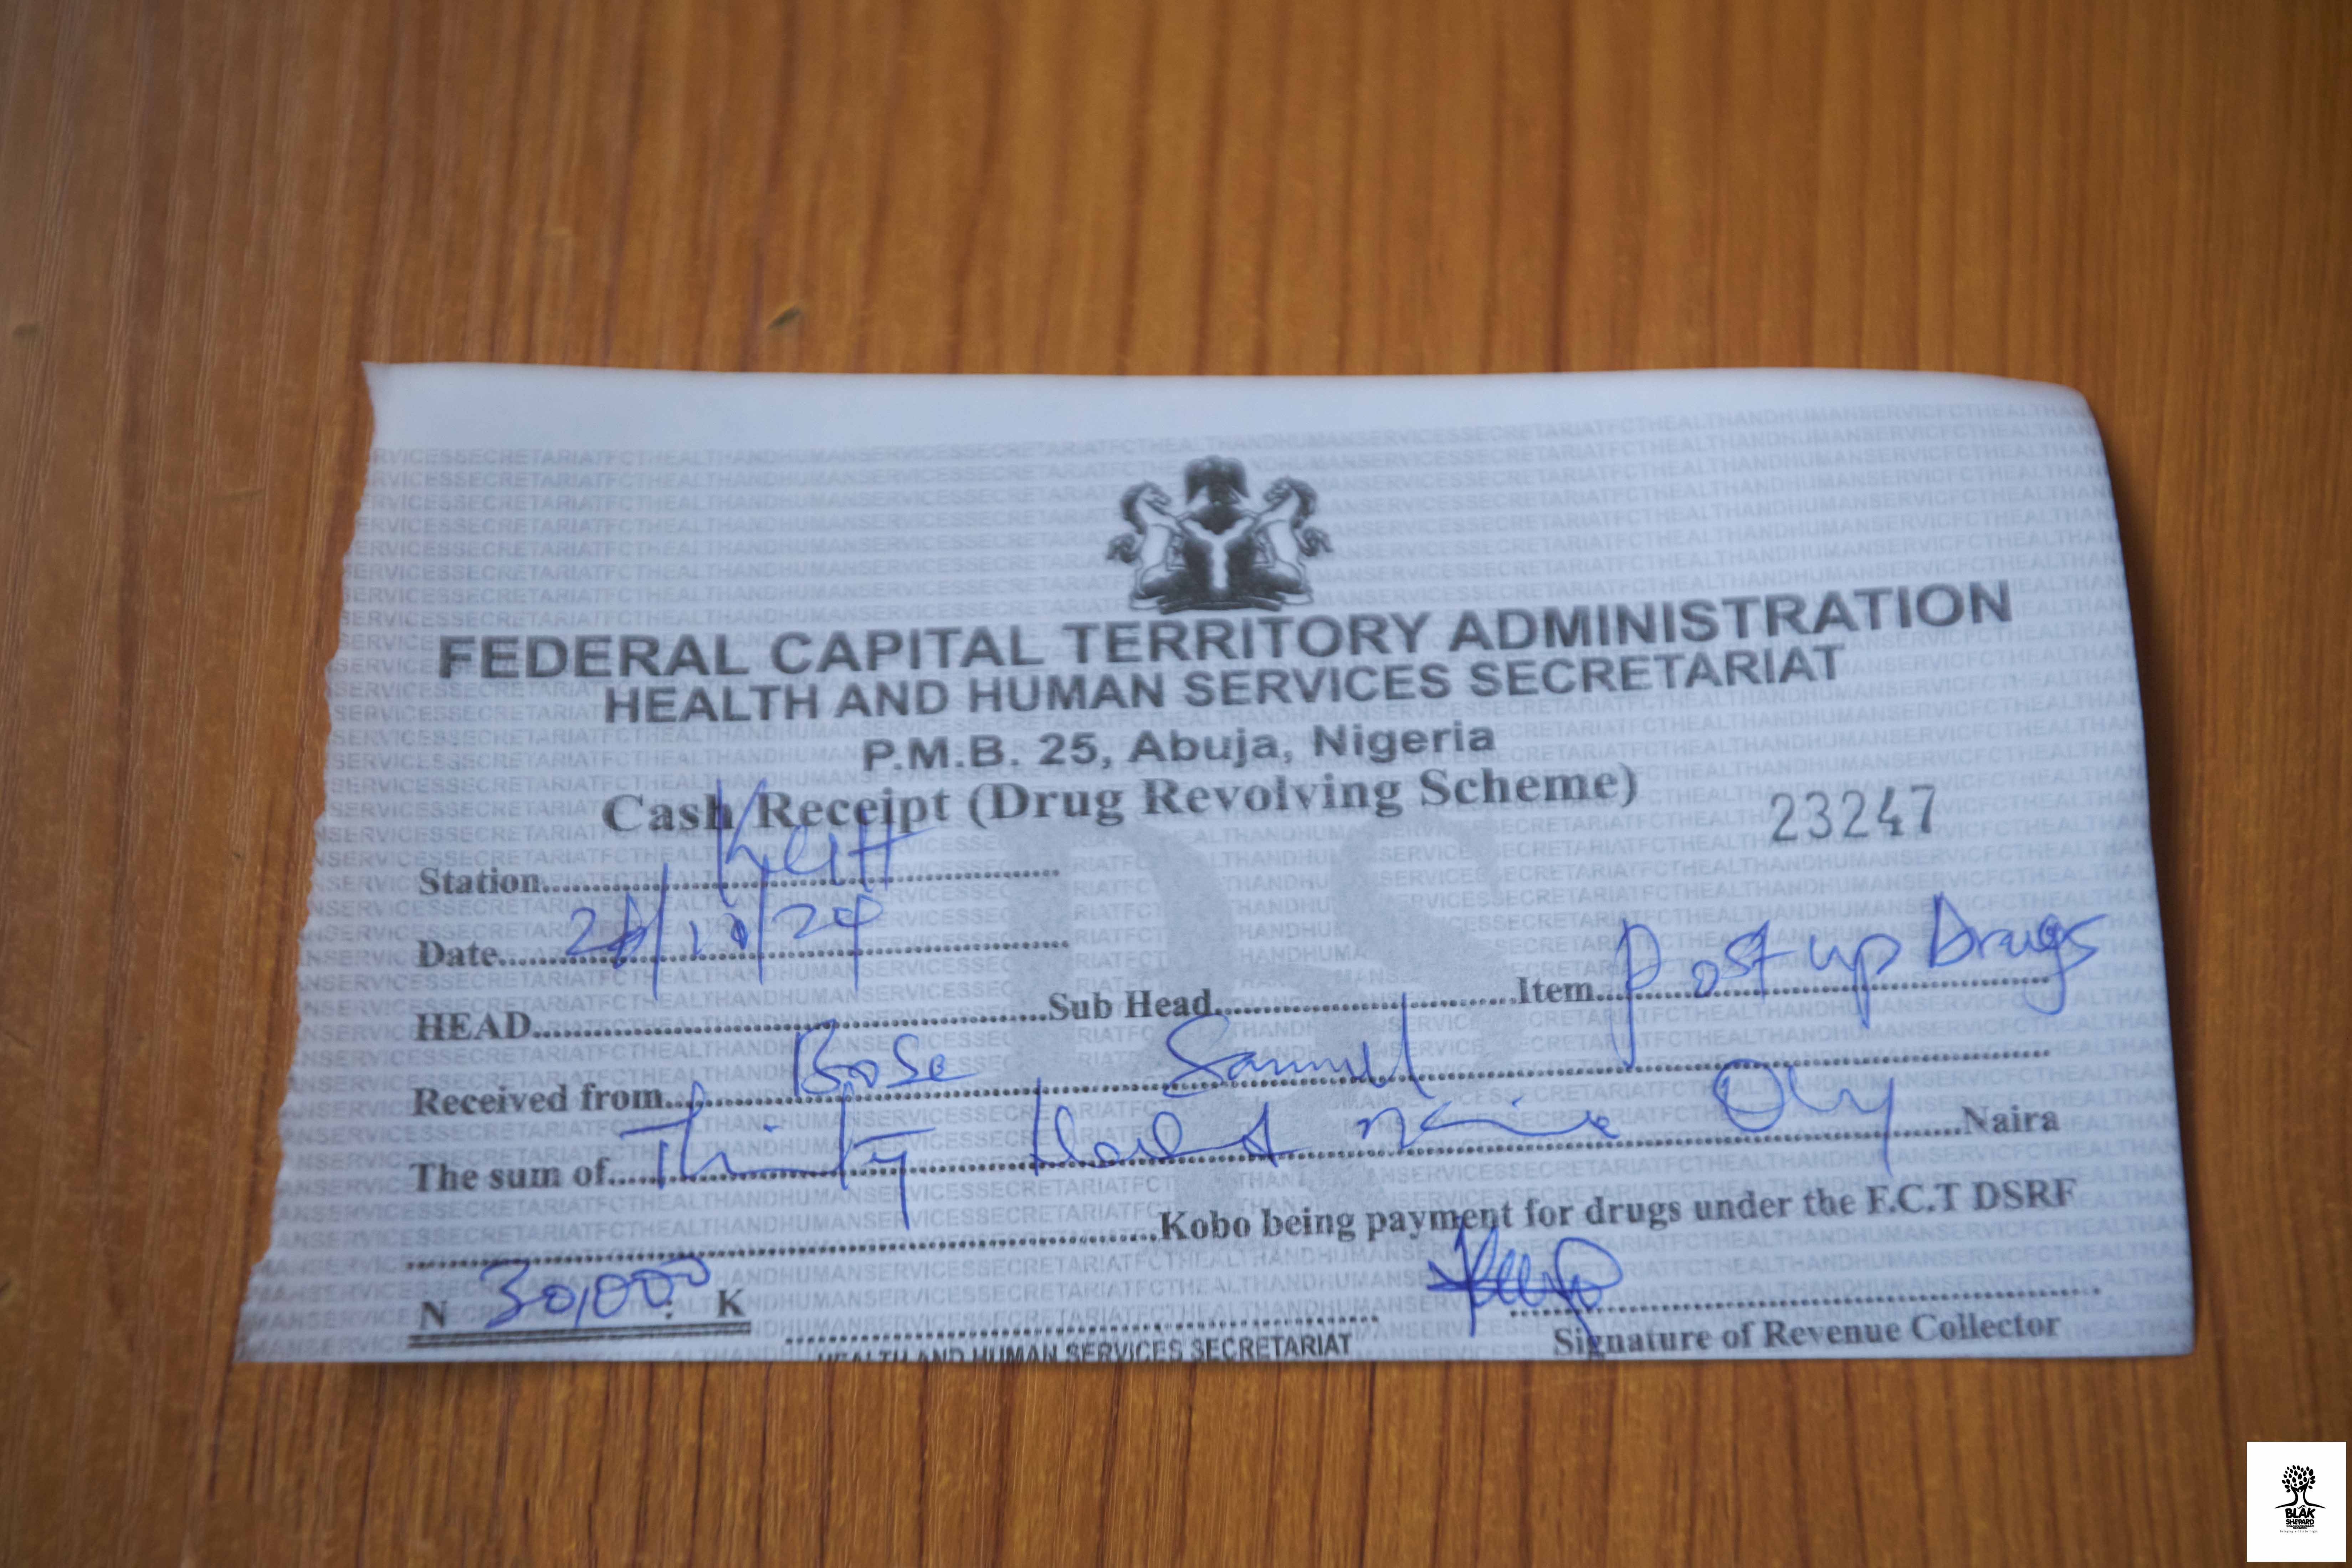 FEDERAL CAPITAL TERRITORY ADMINISTRATION
HEALTH AND HUMAN SERVICES SECRETARIAT
P.M.B. 25, Abuja, Nigeria
Cash Receipt (Drug Revolving Scheme)
23247
Station
Date
HEAD Sub Head Item Post up Drugs
Received from Bose Samuel
The sum of Thirty Naira Only Naira
Kobo being payment for drugs under the F.C.T DSRF
N 30,000 : K
Signature of Revenue Collector
HEALTH AND HUMAN SERVICES SECRETARIAT
BLAK
SHEPARD